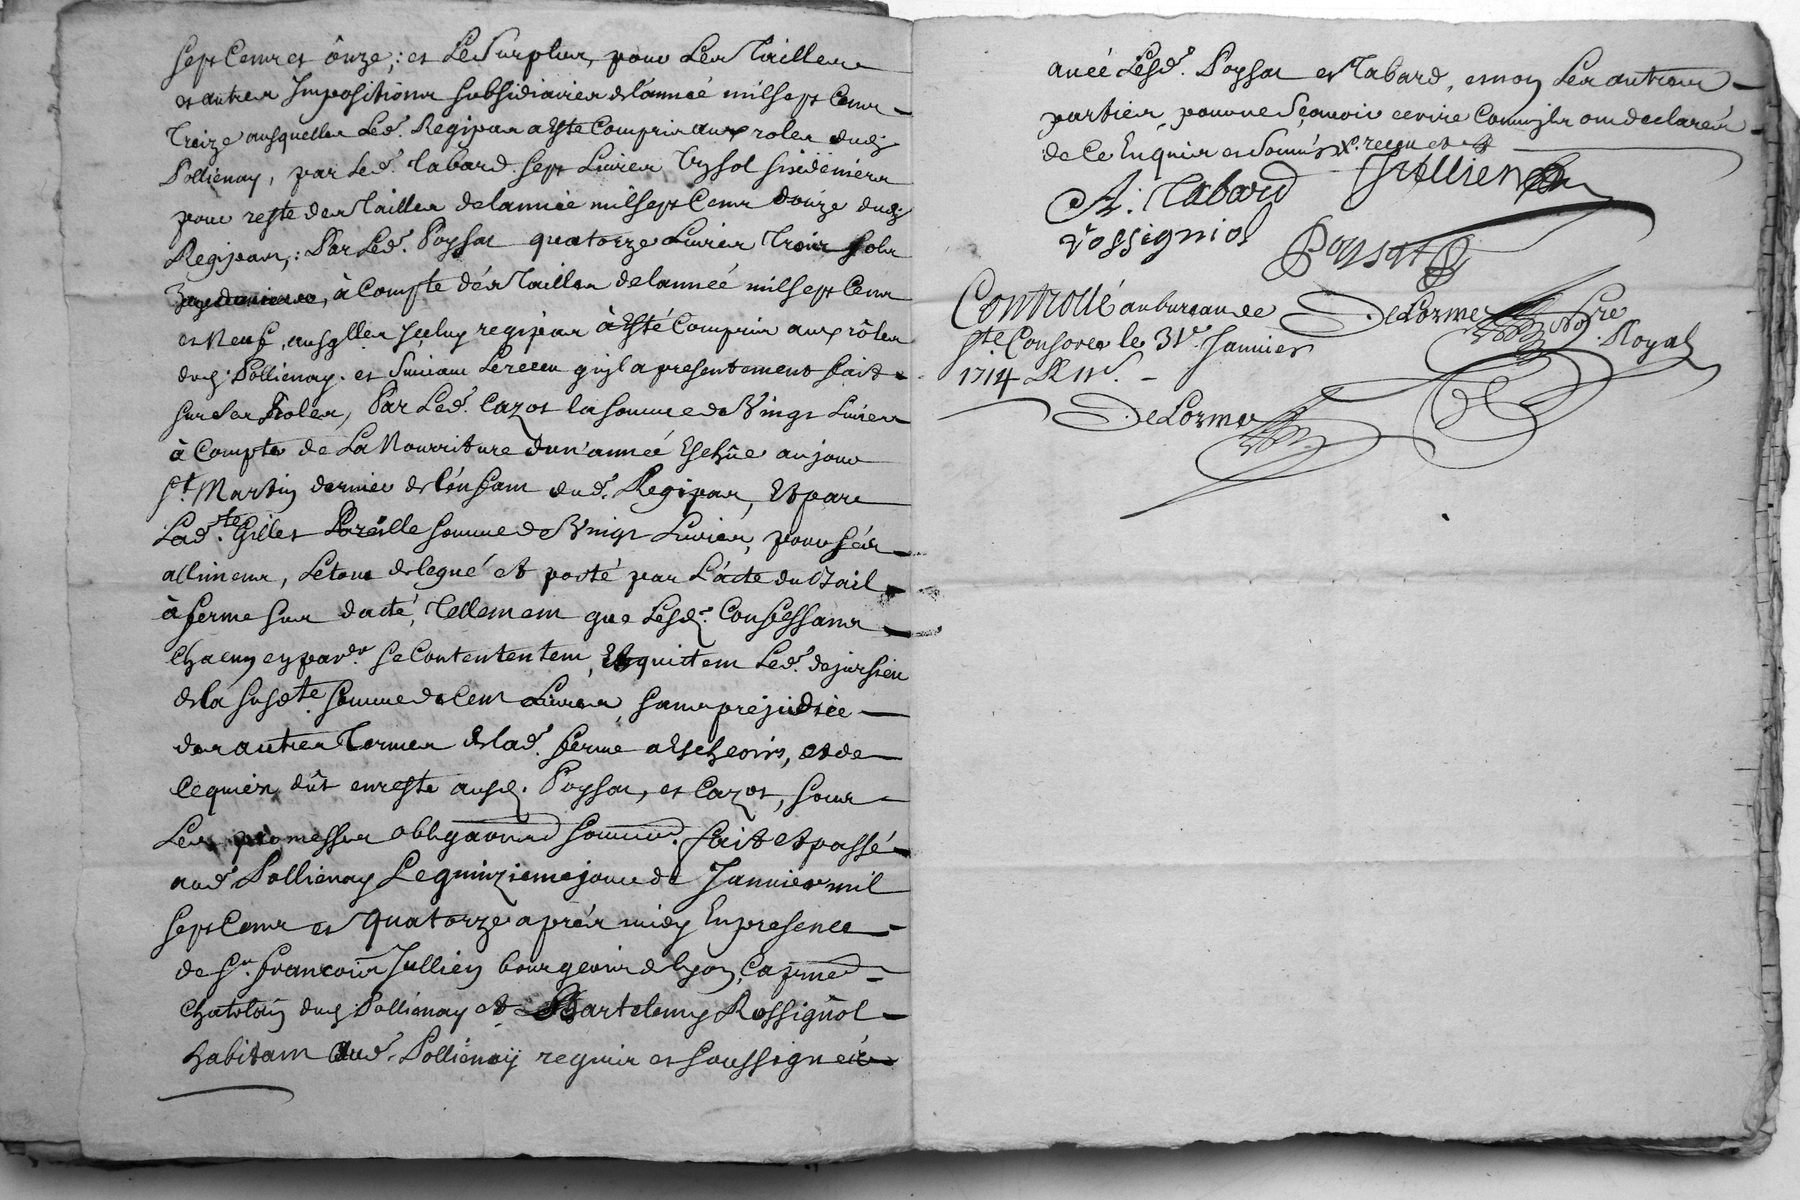 sept cents et ônze ; et Le Surplus, pour Les Tailles
et autres Impositions subsidiaires de l'année mil sept Cents
Treize ausquelles Led. Regipas a Esté Compris aux roles dud.
Pollienay, par Led. Tabard sept Livres Trs sol six deniers
pour reste des Tailles de lannée mil sept Cents douze dud.
Regipas, : Par Led. Poysat quatorze Livres Trois sols
à Compte dés Tailles de lannéé mil sept Cens
et Neuf, ausqlles Iceluy regipas à Esté Compris aux rôles
dud. Pollienay. et suivant Le receu qu'il a presentement fait
sur Ses Roles, Par Led. Cazot la somme de Vingt Livres
à Compte de La Nourriture dun'année Eschûe au jour
St. Martin dernier de l'enfant dud. Regipas, Et par
Lad.te Gilles somme de Vingt Livres, pour sés
allimens, Le tout delegué et porté par L'acte du Bail
à ferme sus datté, Tellement que Lesd. Confessans
Chacun en par.dr se Contentent, Et quittent Led. dejussieu
de la susd.te somme de Cent Livres, sans prejudice
des autres Termes de lad. ferme a Escheoir, et de
Ce qui est dût en reste ausd. Poysat, et Cazot, sous
Les promesses obligaons soumi.. fait et passé
aud. Pollienay Le quinzieme jour de Janvier mil
sept Cents et quatorze aprés midy En presence
de Sr. francois Jullien bourgeois de lyon,
Chatelain dud. Pollienay et Bartelemy Rossignol
habitant Aud. Pollienay requis et soussignés
avéc Lesd. Poysat et Tabard, et non Les autres
parties, pour ne sçavoir ecrire Comme ils ont declarés
de Ce Enquis et sommés
A. Tabard Jullien
rossigniol
Poysat
Controllé au bureau de
Ste. Consorce le 31e. Janvier
1714
DeLorme Nore
Royal
DeLorme